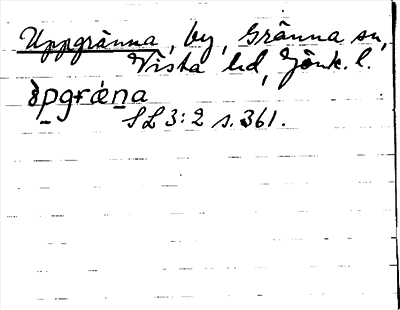 Uppgränna, by, Gränna sn,
Vista hd, Jönk. l.
S L 3:2 s. 361.